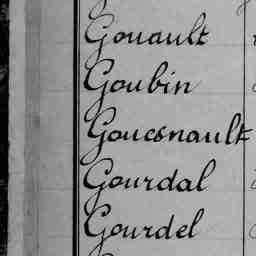 Gouault
Goubin
Gouesnault
Gourdal
Gourdel